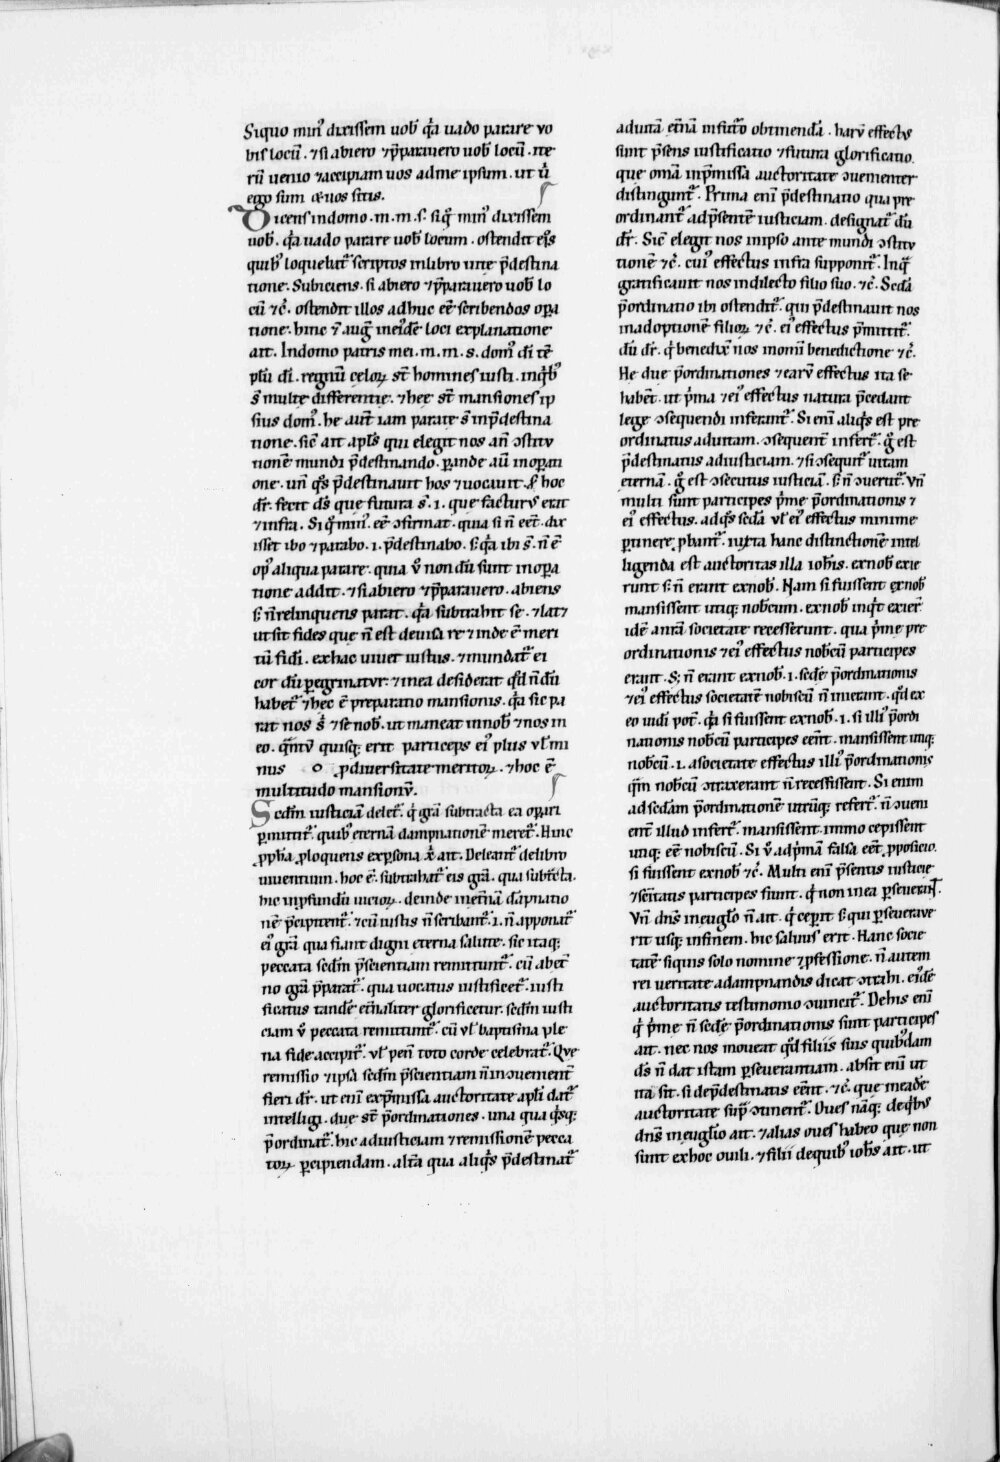 Siquo min᾽ dixissem uob̅ q̇a uado parare vo
bis locū . ⁊ si abiero ⁊ p̅parauero uob̅ locū . ite
rū uenio ⁊ accipiam uos ad me ipsum . ut u̇
ego sum ⁊ uos sitis .
Dicens in domo . m . m . s̅ . siq̇ min᾽ dixissem
uob̅ . q̇a uado parare uob̅ locum . ostendit eos
quib᾽ loquebat̅ scriptos in libro uite p̅destina
tione . Subiciens . si abiero ⁊ p̅parauero uob̅ lo
cū ⁊c̅ . ostendit illos adhuc eē scribendos opa
tione . hinc ē aug̅ in eidē loci explanatione
ait . In domo patris mei . m . m . s . dom᾽ dī tē
plū dī . regnū celoꝝ st̅ homines iusti . inq̇b᾽
s̅ multe differentie . ⁊ hec st̅ mansiones ip
sius dom᾽ . he aut̅ iam parate s̅ in p̅destina
tione . sic̅ ait apl̅s qui elegit nos an̅ ↄstitu
tionē mundi p̅destinando . ꝑande aū in opati
one . un̅ q̇s p̅destinauit hos ⁊ uocauit . s̅ hoc
dr̅ . fecit ds̅ que futura s̅ . i . que facturus erit
⁊ infra . Si q̇ min᾽ . eē ↄfirmat . quia si n̅ eēt . dix
isset ibo ⁊ parabo . i . p̅destinabo . s̅ q̇a ibi s̅ . n̅ ē
op᾽ aliqua parare . quia u̇ non dū sunt in opa
tione addit . ⁊ si abiero ⁊ p̅parauero . abiens
s̅ n̅ relinquens parat . q̇a subtrahit se . ⁊ latet
ut sit fides que n̅ est de uisa re ⁊ inde ē meri
tū fidi . ex hac uiuet iustus . ⁊ mundat̅ ei
cor dū ꝑegrinatur . ⁊ in ea desiderat qd̅ n̅ dū
habet̅ ⁊ hec ē preparatio mansionis . q̇a sic pa
rat nos s̅ ⁊ se nob̅ . ut maneat in nob̅ ⁊ nos in
eo . q̅ntū quisq; erit particeps ei᾽ plus ul̅ mi
nus o ꝓ diuersitate meritoꝝ . ⁊ hoc ē
multitudo mansionū .
Sedm̅ iusticiā delet̅ . q̇ gr̅a subtracta ea oꝑiri
ꝑmittit̅ . quib᾽ eternā dampnationē meret̅ . Hinc
ꝓph̅a ꝓloquens ex ꝑsona x̅i ait . Deleant̅ de libro
uiuentium . hoc ē . subtrahat̅ eis gr̅a . qua subt̅cta .
hic in ꝓfundū uicioꝝ . deinde in etn̅ā dāpnatio
nē p̅cipitent̅ . ⁊ cū iustis n̅ scribant̅ . i . n̅ apponat̅
ei᾽ gr̅a qua fiant digni eterna salute . sic itaq;
peccata sedm̅ p̅scientiam remittunt̅ . cū abet̅
no gr̅a p̅parat̅ . qua uocatus iustificet̅ . iusti
ficatus tandē etn̅aliter glorificetur . sedm̅ iusti
ciam u̇ peccata remittunt̅ . cū ul̅ baptisma ple
na fide accipit̅ . ul̅ pen̅ toto corde celebrat̅ . Que
remissio ⁊ ipsa sedm̅ p̅scientiam n̅ inↄuenient̅
fieri dr̅ . ut eni̅ ex p̅missa auctoritate apl̅i dat̅
intelligi . due st̅ p̅ordinationes . una qua q̇sq;
p̅ordinat̅ . hic ad iusticiam ⁊ remissionē pecca
toꝝ ꝑcipiendam . alt̅a qua aliq̇s p̅destinat̅
ad uitā etn̅ā in futuro obtinendā . haru̅ effectus
sunt p̅sens iustificatio ⁊ futura glorificatio .
que om̅ia in p̅missa auctoritate ↄuenienter
distingunt̅ . Prima eni̅ p̅destinatio qua pre
ordinant̅ ad p̅sentē iusticiam . designat̅ dū
dr̅ . Sic̅ elegit nos in ipso ante mundi ↄstitu
tionē ⁊c̅ . cui᾽ effectus infra supponit̅ . In q̅
gratificauit nos in dilecto filio suo . ⁊c̅ . Sed̅a
p̅ordinatio ibi ostendit̅ . qui p̅destinauit nos
in adoptionē filioꝝ ⁊c̅ . ei᾽ effectus p̅mittit̅ .
dū dr̅ . q̇ benedix̅ nos in omi̅ benedictione ⁊c̅ .
He due p̅ordinationes ⁊ earu̅ effectus ita se
habēt . ut p̅ma ⁊ ei᾽ effectus natura p̅cedant
lege ↄsequendi inferant̅ . Si eni̅ aliq̇s est pre
ordinatus ad uitam . ↄsequent̅ infert̅ . g̊ est
p̅destinatus ad iusticiam . ⁊ si ↄsequit̅ uitam
eternā . g̊ est ↄsecutus iusticiā . s̅ n̅ ↄuerut̅ . Un̅
multi sunt participes p̅me p̅ordinationis ⁊
ei᾽ effectus . ad q̇s sed̅a ul̅ ei᾽ effectus minime
ꝑtinere ꝓbant̅ . iuxta hanc distinctionē intel
ligenda est auctoritas illa ioh̅is . ex nob̅ exie
runt s̅ n̅ erant ex nob̅ . Nam si fuissent ex nob̅
mansissent utiq; nobcum . ex nob̅ inq̇t exier̅
idē a nr̅a societate recesserunt . qua p̅me pre
ordinationis ⁊ ei᾽ effectus nob̅cū participes
erant . S; n̅ erant ex nob̅ . i . sedē p̅ordinationis
⁊ ei᾽ effectus societatē nobiscū n̅ inierant . qd̅ ex
eo uidi pot̅ . q̇a si fuissent ex nob̅ . i . si illi᾽ p̅ordi
nationis nob̅cū participes eēnt . mansissent utiq;
nob̅cū . i . a societate effectus illi᾽ p̅ordinationis
q̅m nob̅cū ↄtraxerant n̅ recessissent . Si enim
ad sed̅am p̅ordinationē utrūq; refert̅ . n̅ ↄueni
ent̅ illud infert̅ . mansissent . immo cepissent
utiq; eē nobiscū . Si u̇ ad p̅mam falsa eēt ꝓpositio .
si fuissent ex nob̅ ⁊c̅ . Multi eni̅ p̅sentis iusticie
⁊ scītatis participes fiunt . q̇ non in ea ꝑseuerāt̅ .
Un̅ dn̅s in eugl̅o n̅ ait . q̇ ceperit s̅ qui ꝑseuerave
rit usq; in finem . hic saluus erit . Hanc socie
tatē siquis solo nomine ⁊ ꝓfessione . n̅ autem
rei ueritate a dampnandis dicat ↄtrahi . eidē
auctoritatis testimonio ↄuincit̅ . De his eni̅
q̇ p̅me n̅ sedē p̅ordinationis sunt participes
ait . nec nos moueat qd̅ filiis suis quib᾽dam
ds̅ n̅ dat istam ꝑseuerantiam . absit eni̅ ut
ita sit . si de p̅destinatis eēnt . ⁊c̅ . que in eadē
auctoritate sup̅ ↄtinent̅ . Oues nāq; de q̇bus
dn̅s in eugl̅io ait . ⁊ alias oues habeo que non
sunt ex hoc ouili . ⁊ filii de quib᾽ ioh̅s ait . ut